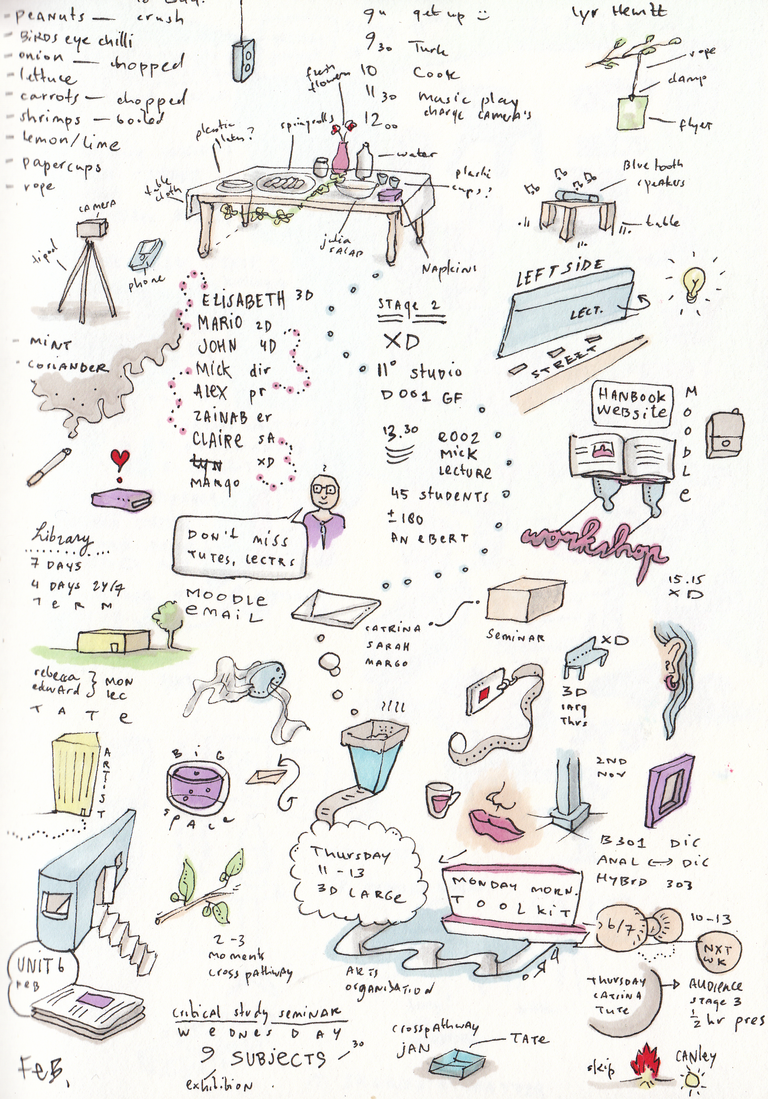 - PEANUTS — crush
- BIRDS eye chilli
- onion — chopped
- lettuce
- carrots — chopped
- shrimps — boiled
- lemon/lime
- papercups
- rope
get up
9 30 Turk
10 Cook
11 30 music play
charge CAMERA's
12 00
Lyr Hewitt
rope
clamp
flyer
fresh
flowers
plastic
plates?
springrolls
water
plastic
cups?
table
cloth
julia
SALAD
NAPKINS
Bluetooth
speakers
table
CAMERA
tripod
phone
MINT
CORIANDER
ELISABETH 3D
MARIO 2D
JOHN 4D
Mick dir
Alex pr
ZAINAB er
CLAIRE SA
LYN XD
MARGO
STAGE 2
XD
11° studio
D001 GF
13.30 E002
MICK
LECTURE
45 STUDENTS
± 180
AN EBERT
LEFT SIDE
LECT.
STREET
HANBOOK
WEBSITE
MOODLE
workshop
15.15
XD
?
DON'T MISS
TUTES, LECTRS
MOODLE
EMAIL
Library
7 DAYS
4 DAYS 24/7
TERM
rebecca
edward } MON
LEC
TATE
CATRINA
SARAH
MARGO
SEMINAR
XD
3D
Thrs
ARTIST
BIG
SPACE
2ND
NOV
B301 DIC
ANAL ↔ DIC
HYBRD 303
THURSDAY
11 - 13
3D LARGE
MONDAY MORN.
TOOLKIT
6/7
10-13
NXT
WK
2 - 3
moments
cross pathway
ARTS
ORGANISATION
UNIT 6
FEB
THURSDAY
CATRINA
TUTE
AUDIENCE
STAGE 3
1/2 hr pres
critical study seminar
WEDNESDAY
9 SUBJECTS 30
exhibition
crosspathway
JAN
TATE
skip
CANLEY
FEB,